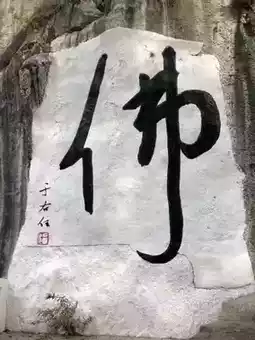 佛
于右任